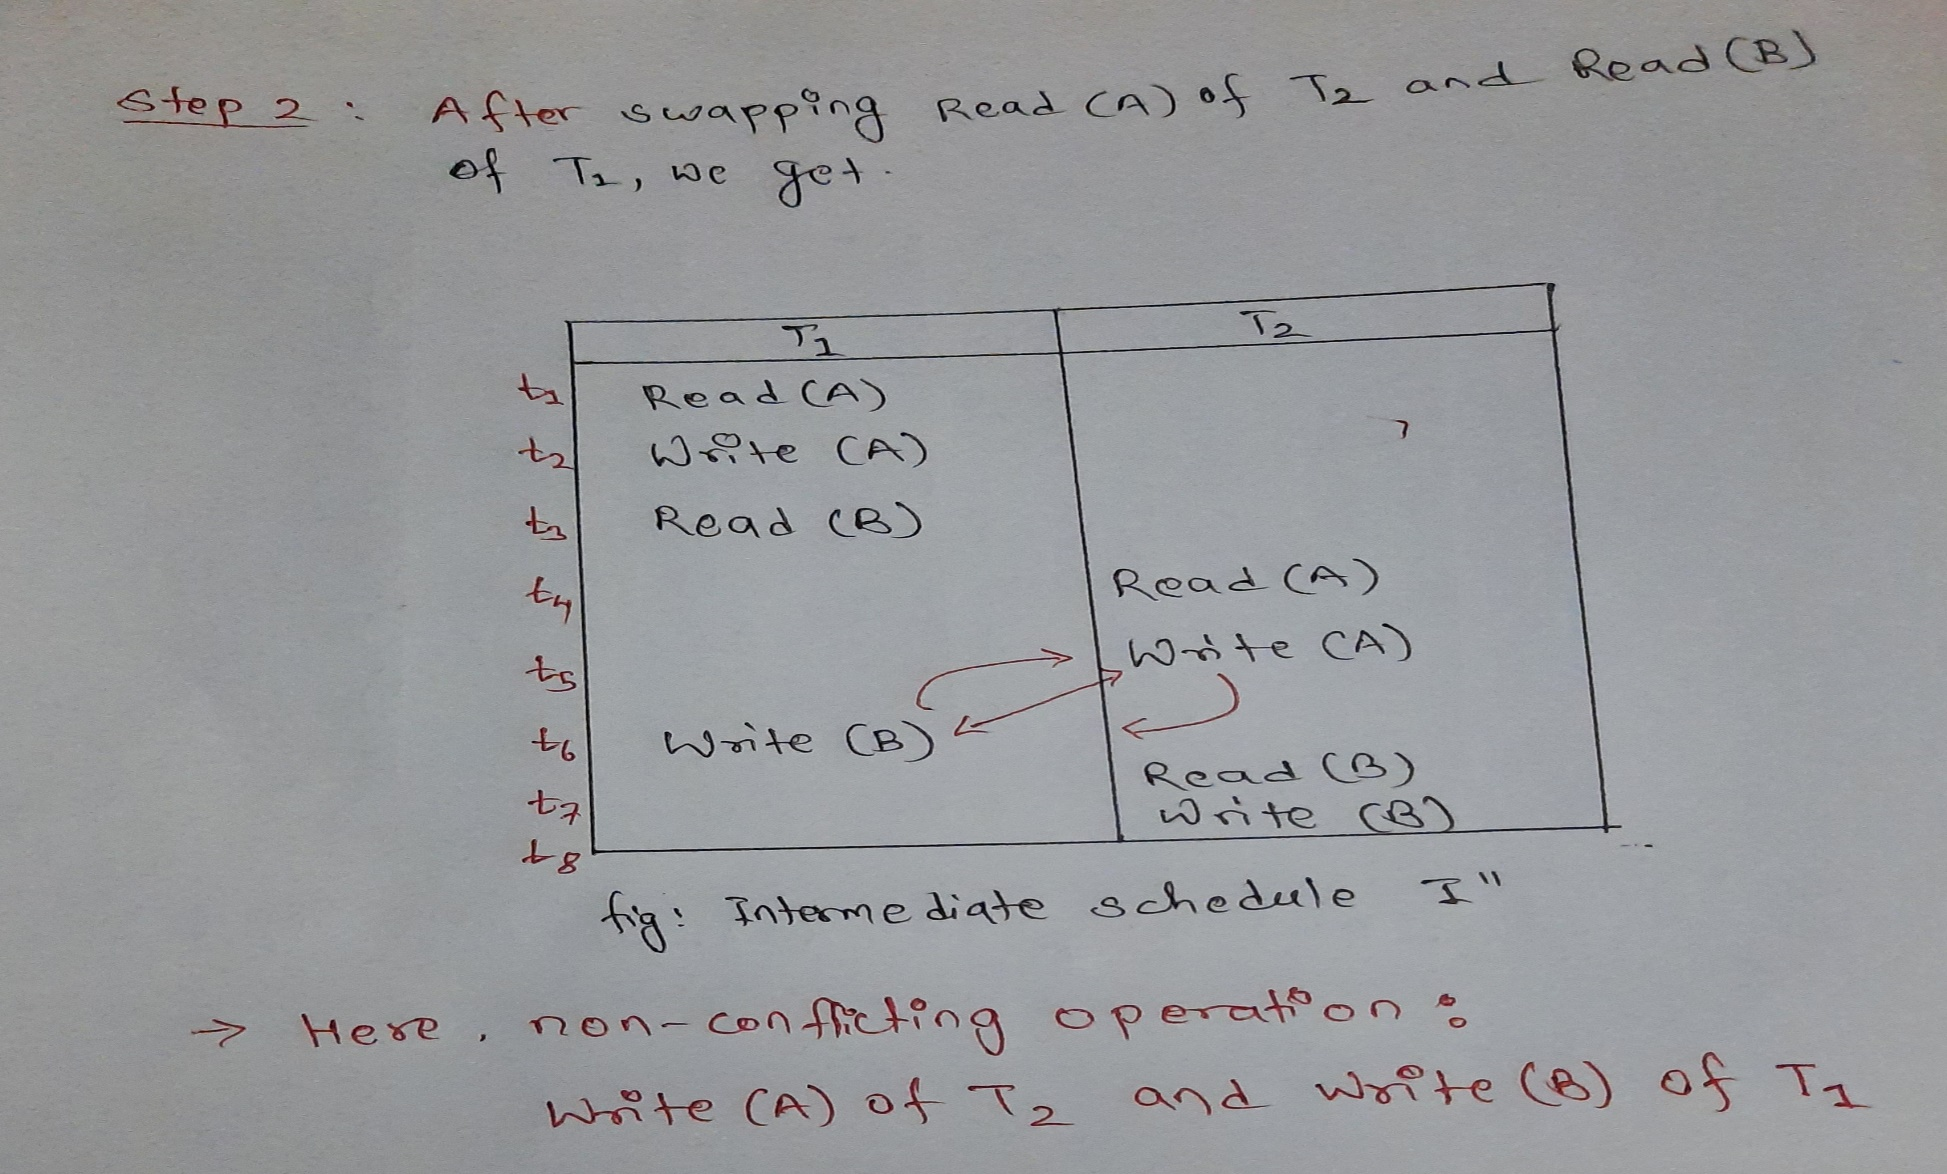 Step 2 : After swapping Read (A) of T2 and Read (B)
of T1, we get.
T1 T2
t1 Read (A)
t2 Write (A)
t3 Read (B)
t4 Read (A)
t5 Write (A)
t6 Write (B)
t7 Read (B)
Write (B)
t8
fig: Intermediate schedule I"
→ Here, non-conflicting operation :
Write (A) of T2 and Write (B) of T1